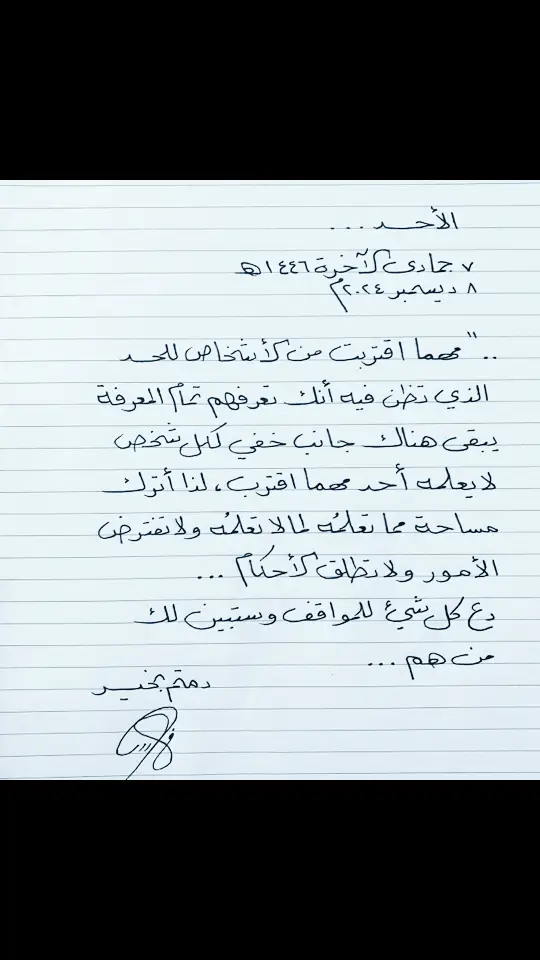 الأحد ...
٧ جمادى الآخرة ١٤٤٦هـ
٨ ديسمبر ٢٠٢٤م
.. " مهما اقتربت من الأشخاص للحد
الذي تظن فيه أنك تعرفهم تمام المعرفة
يبقى هناك جانب خفي لكل شخص
لا يعلمه أحد مهما اقترب، لذا أترك
مساحة مما تعلمُه لما لا تعلمُه ولا تفترض
الأمور ولا تطلق الأحكام ...
دع كل شيئ للمواقف وستبين لك
من هم ...
دمتم بخير